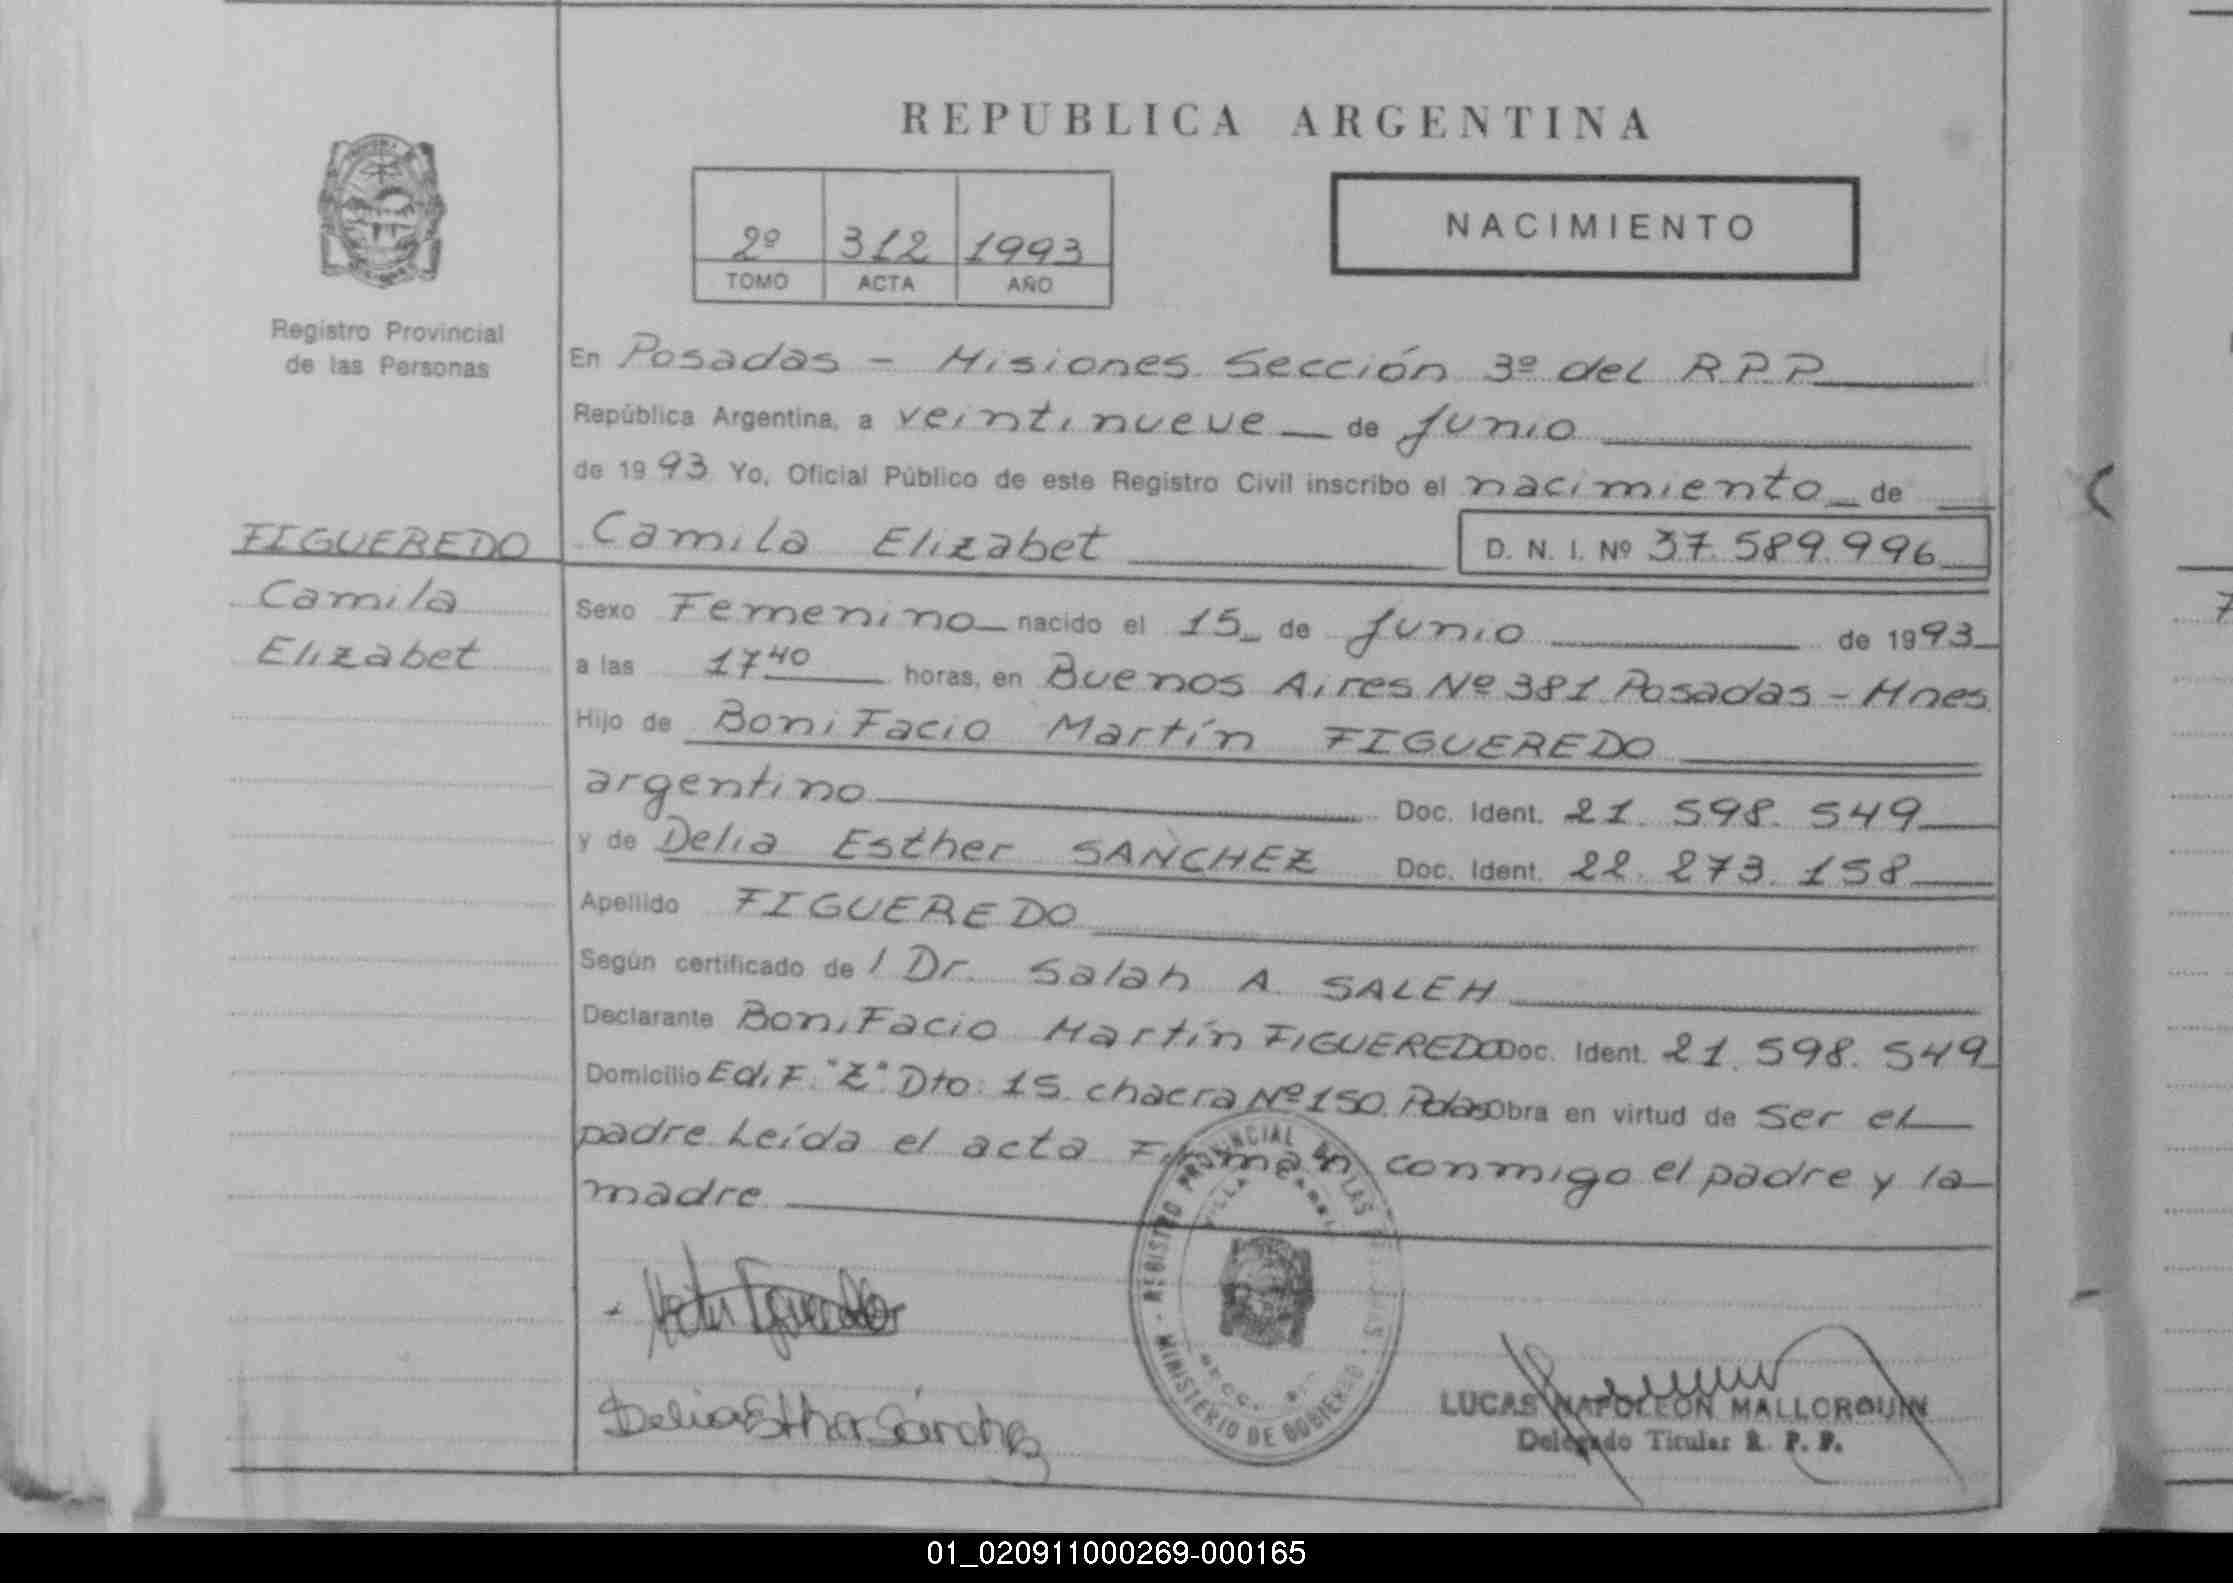 REPUBLICA ARGENTINA
2º 312 1993
TOMO ACTA AÑO
NACIMIENTO
Registro Provincial
de las Personas
En Posadas - Misiones Sección 3º del R.P.P
República Argentina, a veintinueve de Junio
de 1993 Yo, Oficial Público de este Registro Civil inscribo el nacimiento de
FIGUEREDO
Camila
Elizabet
Camila Elizabet D. N. I. Nº 37.589.996
Sexo Femenino nacido el 15 de Junio de 1993
a las 17 40 horas, en Buenos Aires Nº 381 Posadas - Mnes
Hijo de BoniFacio Martín FIGUEREDO
argentino Doc. Ident. 21.598.549
y de Delia Esther SANCHEZ Doc. Ident. 22.273.158
Apellido FIGUEREDO
Según certificado de / Dr. Salah A. SALEH
Declarante BoniFacio Martín FIGUEREDO Doc. Ident. 21.598.549
Domicilio EdiF. "Z" Dto: 15 chacra Nº 150. Pdas Obra en virtud de Ser el
padre. Leída el acta Firman conmigo el padre y la
madre
Delia Esther Sánchez
REGISTRO PROVINCIAL D LAS
MINISTERIO DE GOBIERNO
VILLA
SECC.
LUCAS NAPOLEON MALLORQUIN
Delegado Titular R. P. P.
01_020911000269-000165